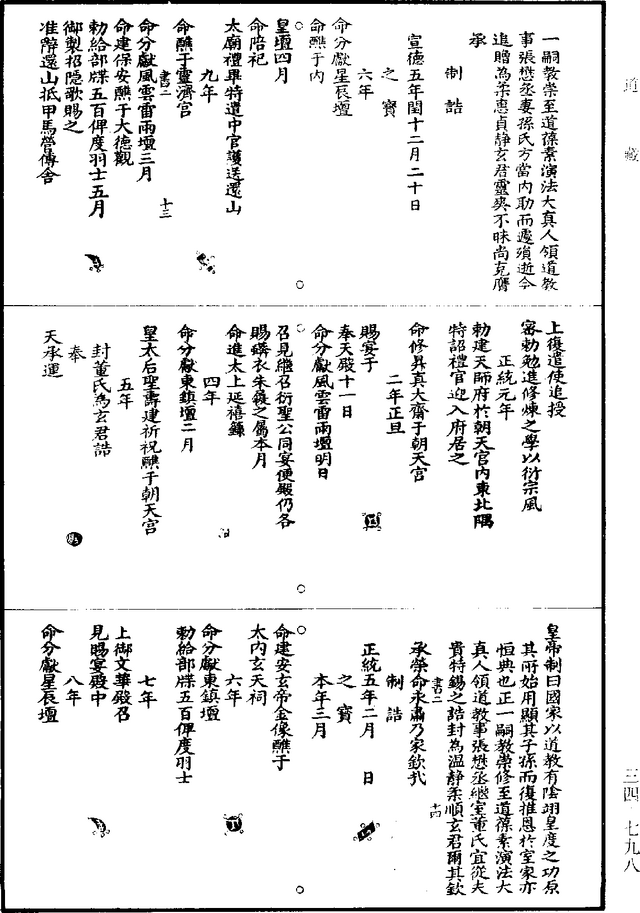 道藏
一嗣教崇至道葆素演法大真人領道教
事張懋丞妻孫氏方當內助而遽殞逝今
追贈為柔惠貞静玄君靈爽不昧尚克膺
承
制誥
宣德五年閏十二月二十日
之寶
六年
命分獻星辰壇
命醮于內
皇壇四月
命陪祀
太廟禮畢特遣中官護送還山
九年
命醮于靈濟宮
書二
十三
命分獻風雲雷雨壇三月
命建保安醮于大德觀
勅給部牒五百俾度羽士五月
御製招隠歌賜之
准辭還山抵甲馬營傳舍
上復遣使追授
宻勅勉進修煉之學以衍宗風
正統元年
勅建天師府於朝天宮內東北隅
特詔禮官迎入府居之
命修昇真大齋于朝天宮
二年正旦
賜宴于
奉天殿十一日
命分獻風雲雷雨壇明日
召見繼召衍聖公同宴便殿仍各
賜鏻衣朱履之屬本月
命進太上延禧籙
四年
命分獻東鎮壇二月
皇太后聖壽建祈祝醮于朝天宮
五年
封董氏為玄君誥
奉
天承運
皇帝制曰國家以道教有隂翊皇度之功原
其所始用顯其子孫而復推恩於室家亦
恒典也正一嗣教崇修至道葆素演法大
真人領道教事張懋丞繼室董氏宜從夫
貴特錫之誥封為溫静柔順玄君爾其欽
承榮命永肅乃家欽哉
書二
十四
制誥
正統五年二月 日
之寶
本年三月
命建安玄帝金像醮于
大內玄天祠
六年
命分獻東鎮壇
勅給部牒五百俾度羽士
七年
上御文華殿召
見賜宴殿中
八年
命分獻星辰壇
三四·七九八